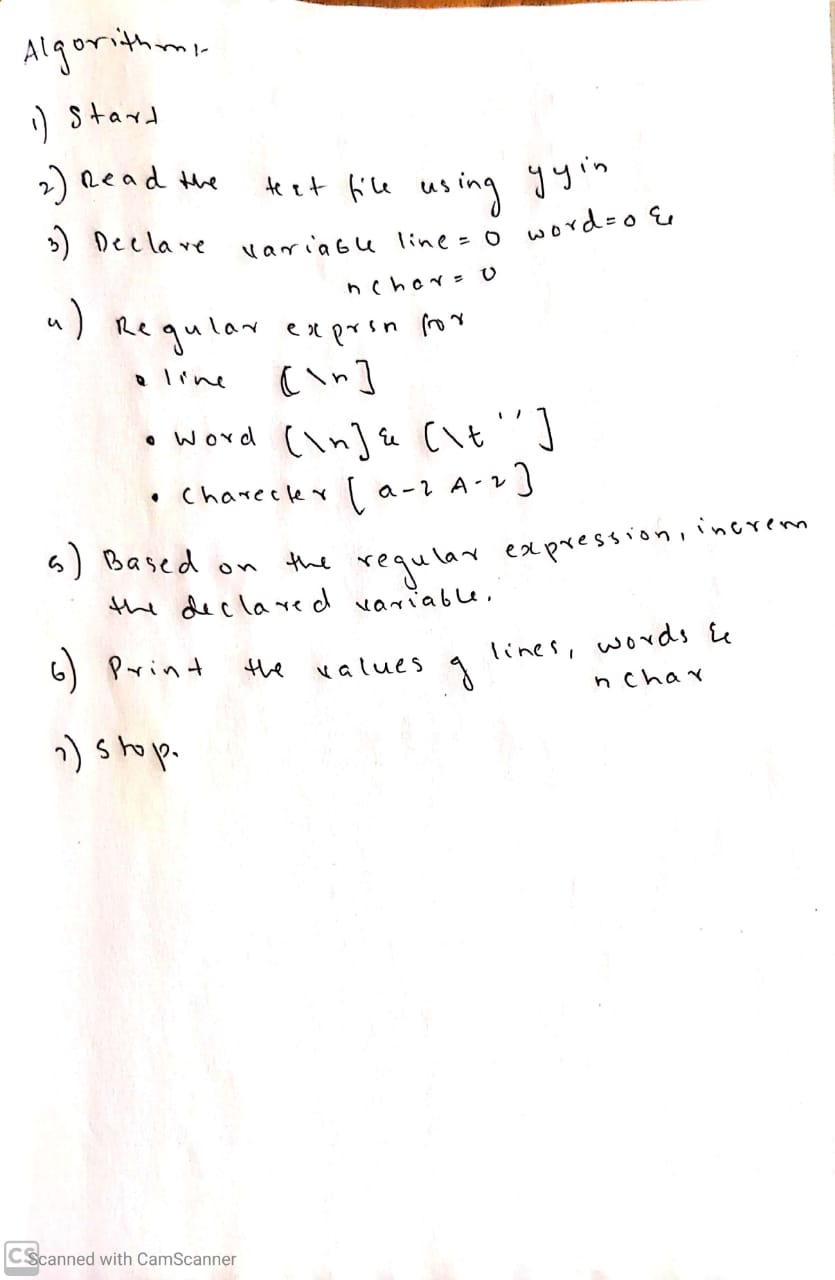 Algorithm:-
1) Start
2) Read the text file using yyin
3) Declare variable line = 0 word=0 &
nchar = 0
4) Regular exprsn for
• line [\n]
• word [\n] & [\t " ]
• Charecter [a-z A-z]
5) Based on the regular expression, increm
the declared variable.
6) Print the values of lines, words &
nchar
7) stop.
CS Scanned with CamScanner